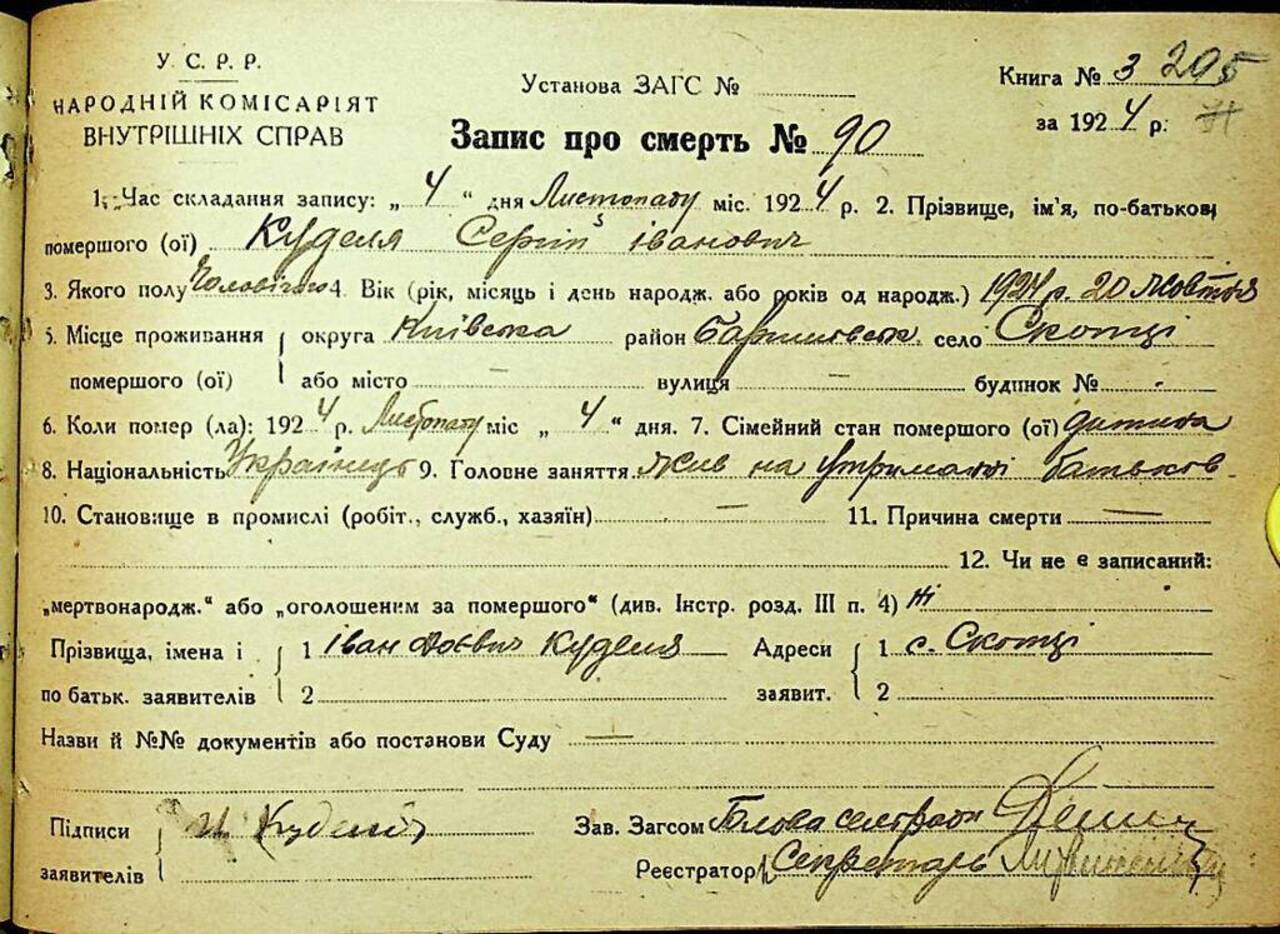 У. С. Р. Р.
НАРОДНІЙ КОМІСАРІЯТ
ВНУТРІШНІХ СПРАВ
Установа ЗАГС №
Книга № 3 205
за 1924 р.
Запис про смерть № 90
1. Час складання запису: „ 4 “ дня Листопаду міс. 1924 р. 2. Прізвище, ім'я, по-батькови
помершого (ої) Куделя Сергій Іванович
3. Якого полу Чоловічого 4. Вік (рік, місяць і день народж. або років од народж.) 1924 р. 20 Жовтня
5. Місце проживання округа Київська район Баришівськ. село Скотці
помершого (ої) або місто — вулиця — будинок № -
6. Коли помер (ла): 1924 р. Листопаду міс „ 4 “ дня. 7. Сімейний стан помершого (ої) дитина
8. Національність Українець 9. Головне заняття Жив на утриманні батьков
10. Становище в промислі (робіт., служб., хазяїн) — 11. Причина смерти —
12. Чи не є записаний:
„мертвонародж.“ або „оголошеним за помершого“ (див. Інстр. розд. III п. 4) Ні
Прізвища, імена і 1 Іван Куделя Адреси 1 с. Скотці
по батьк. заявителів 2 заявит. 2
Назви й №№ документів або постанови Суду —
Підписи И Куделя Зав. Загсом Голова сельради
заявителів Реєстратор Секретарь